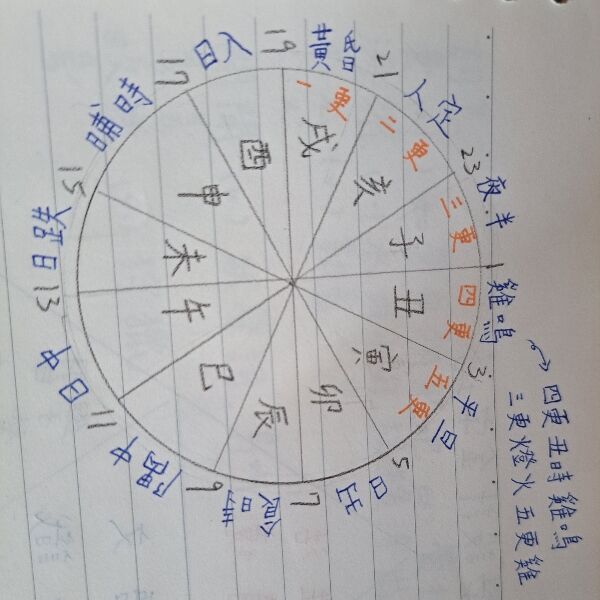 夜半
雞鳴
平旦
日出
食時
隅中
日中
日跌
晡時
日入
黃昏
人定
23
1
3
5
7
9
11
13
15
17
19
21
一更
二更
三更
四更
五更
子
丑
寅
卯
辰
巳
午
未
申
酉
戌
亥
四更丑時雞鳴
三更燈火五更雞